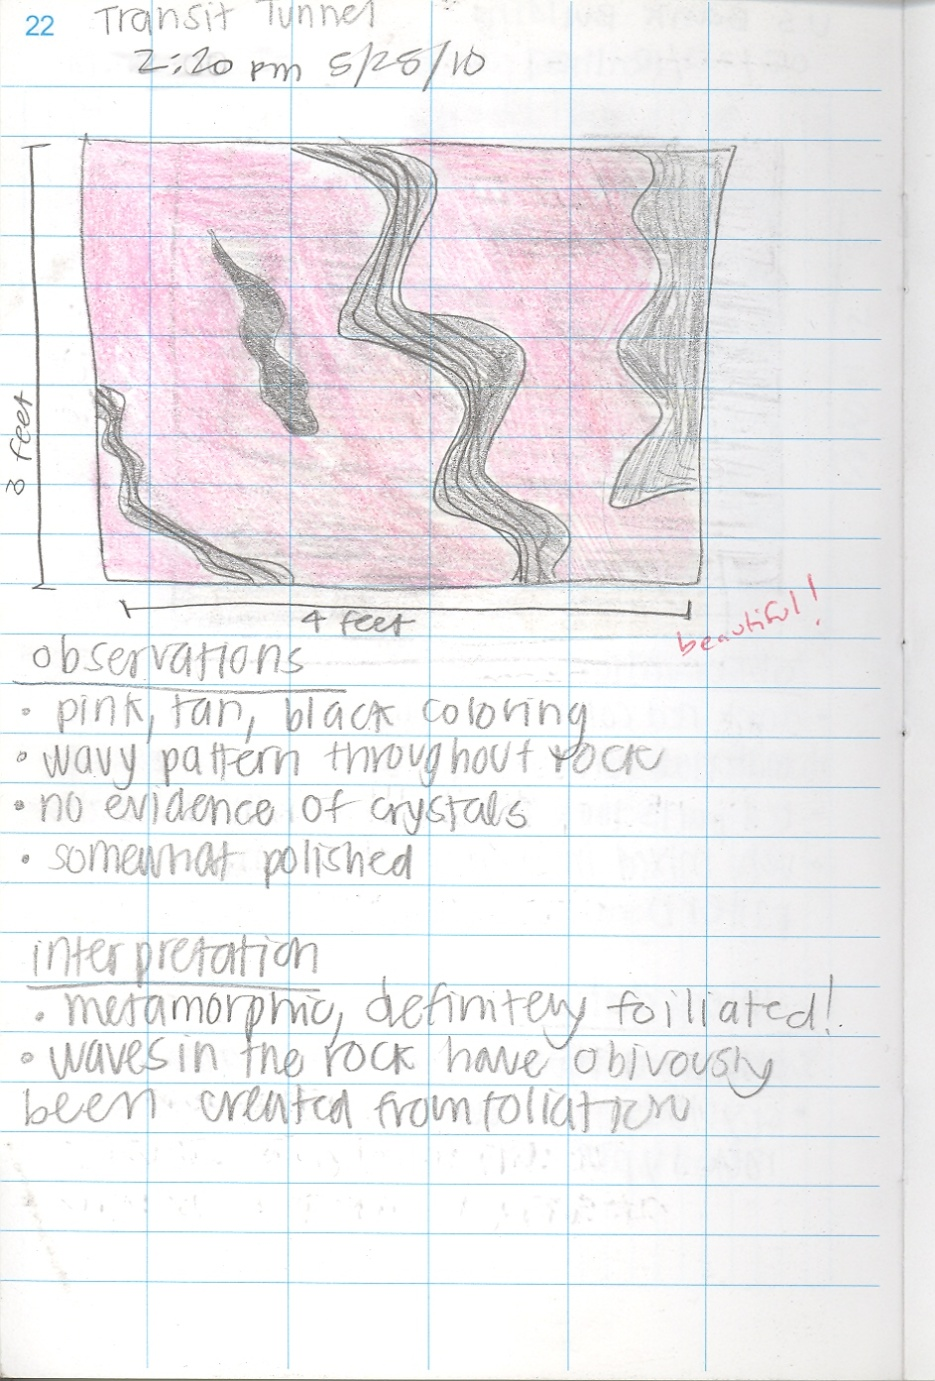 22
Transit Tunnel
2:20 pm 5/25/10
3 feet
4 feet
beautiful!
observations
• pink, tan, black coloring
• wavy pattern throughout rock
• no evidence of crystals
• somewhat polished
interpretation
• metamorphic, definitely foiliated!
• waves in the rock have obivously
been created from foliation